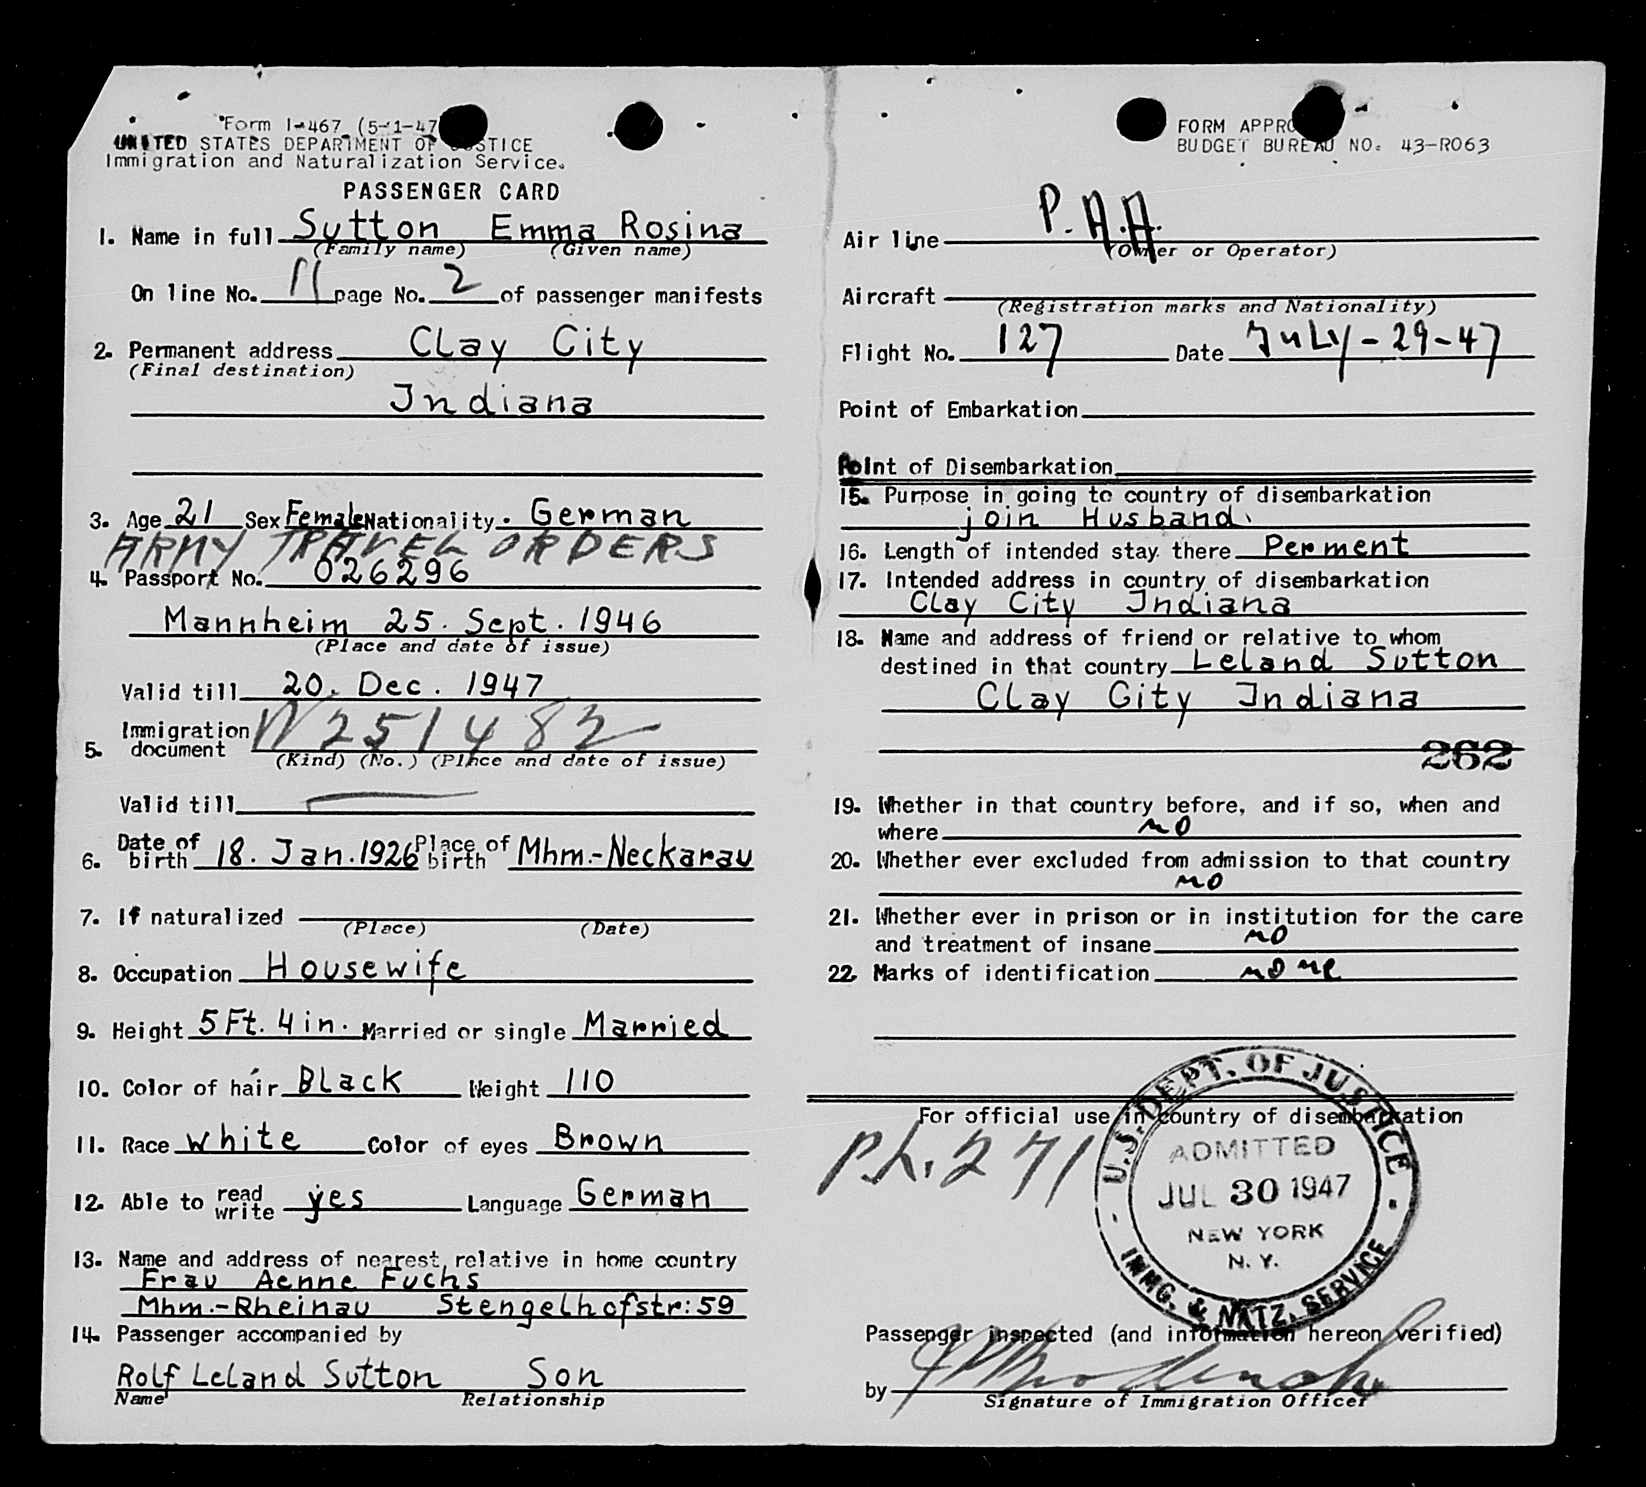 Form I-467 (5-1-47
UNITED STATES DEPARTMENT OF JUSTICE
Immigration and Naturalization Service.
PASSENGER CARD
1. Name in full Sutton Emma Rosina
(Family name) (Given name)
On line No. 11 page No. 2 of passenger manifests
2. Permanent address Clay City
(Final destination)
Indiana
3. Age 21 Sex Female Nationality. German
ARMY TRAVEL ORDERS
4. Passport No. 026296
Mannheim 25. Sept. 1946
(Place and date of issue)
Valid till 20. Dec. 1947
Immigration
5. document V251482
(Kind) (No.) (Place and date of issue)
Valid till
6. Date of birth 18. Jan. 1926 Place of birth Mhm.-Neckarau
7. If naturalized
(Place) (Date)
8. Occupation Housewife
9. Height 5Ft. 4in. Married or single Married
10. Color of hair Black Weight 110
11. Race white Color of eyes Brown
12. Able to read write yes Language German
13. Name and address of nearest relative in home country
Frau Aenne Fuchs
Mhm.-Rheinau Stengelhofstr: 59
14. Passenger accompanied by
Rolf Leland Sutton Son
Name Relationship
FORM APPRO
BUDGET BUREAU NO. 43-R063
Air line P.A.A.
(Owner or Operator)
Aircraft
(Registration marks and Nationality)
Flight No. 127 Date July-29-47
Point of Embarkation
Point of Disembarkation
15. Purpose in going to country of disembarkation
join Husband.
16. Length of intended stay there Perment
17. Intended address in country of disembarkation
Clay City Indiana
18. Name and address of friend or relative to whom
destined in that country Leland Sutton
Clay City Indiana
262
19. Whether in that country before, and if so, when and
where no
20. Whether ever excluded from admission to that country
no
21. Whether ever in prison or in institution for the care
and treatment of insane no
22. Marks of identification none
For official use in country of disembarkation
Ph. 271
U.S. DEPT. OF JUSTICE
ADMITTED
JUL 30 1947
NEW YORK
N. Y.
IMMG. & NATZ. SERVICE
Passenger inspected (and information hereon verified)
by
Signature of Immigration Officer